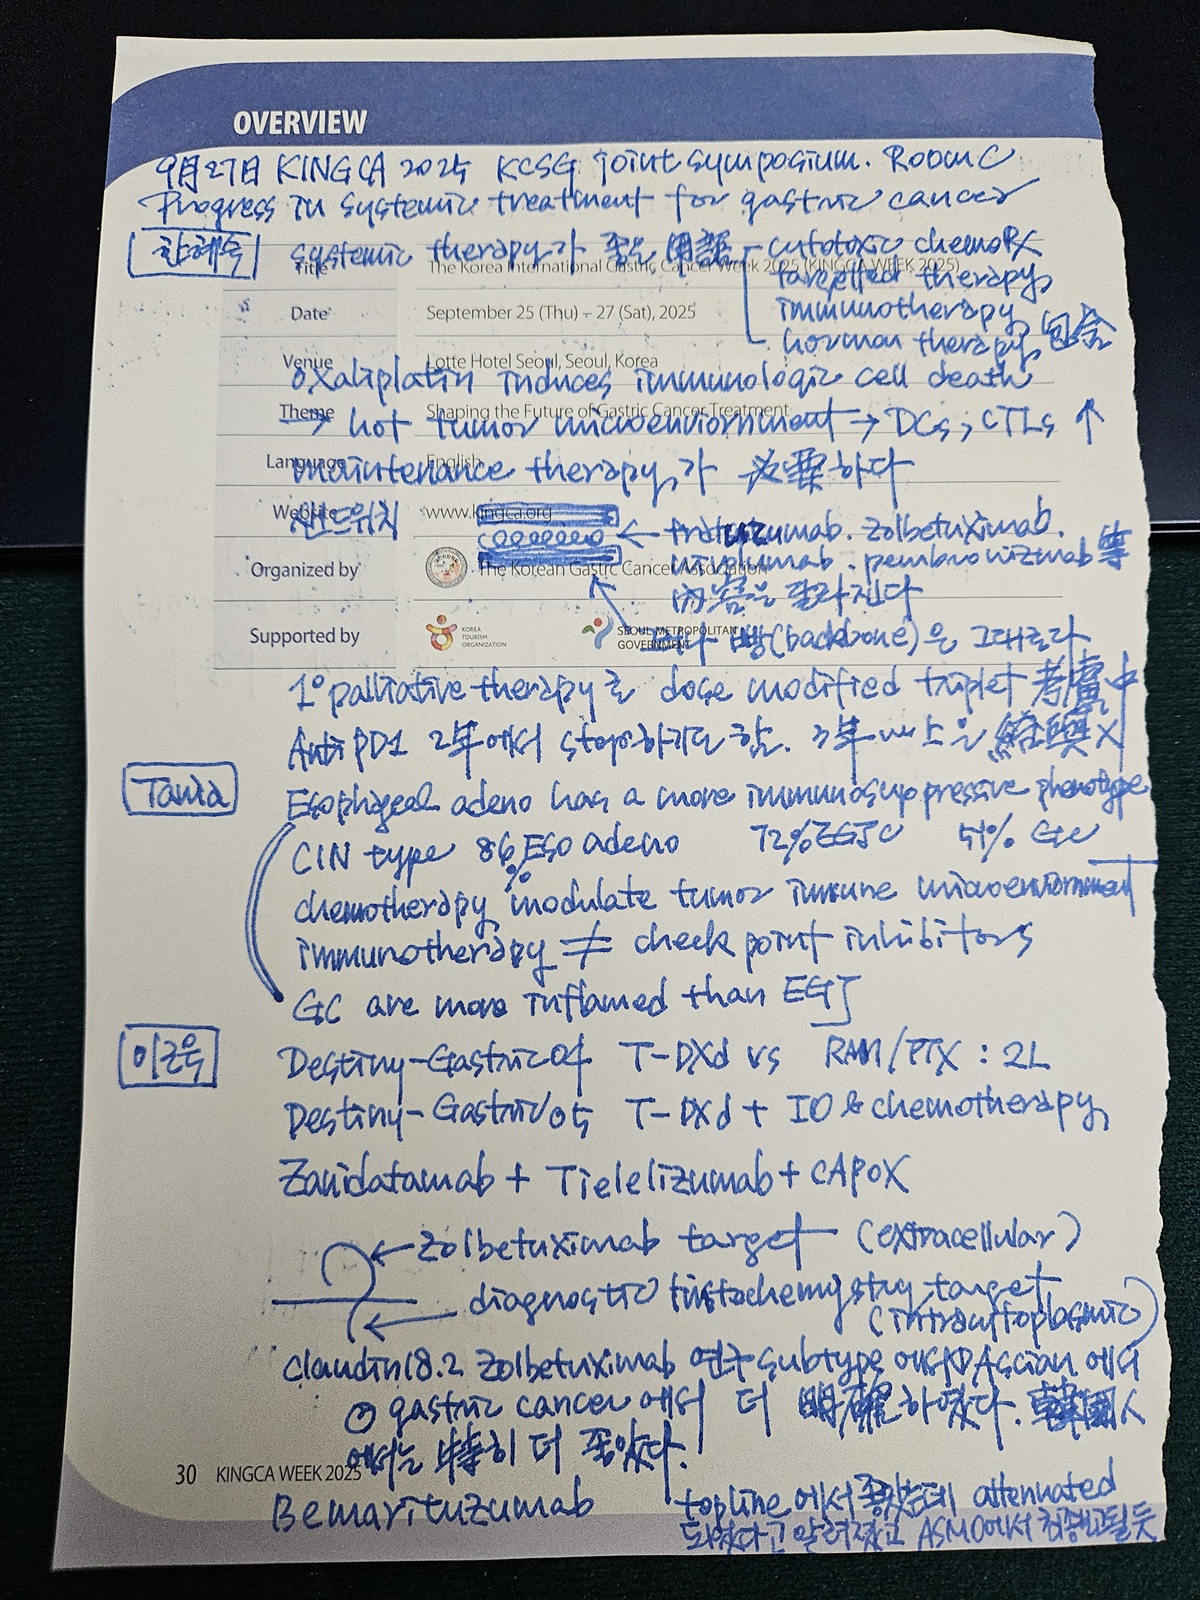 OVERVIEW
9月27日 KINGCA 2025 KCSG joint symposium. Room C
Progress in systemic treatment for gastric cancer
systemic therapy가 좋은 用語 cytotoxic chemoRx
Title The Korea International Gastric Cancer Week 2025 (KINGCA WEEK 2025)
targetted therapy
Date September 25 (Thu) – 27 (Sat), 2025
immunotherapy
hormon therapy 包含
Venue Lotte Hotel Seoul, Seoul, Korea
oxaliplatin induces immunologic cell death
Theme Shaping the Future of Gastric Cancer Treatment
→ hot tumor microenviornment → DCs, CTLs ↑
Language English
maintenance therapy가 必要하다
Website www.kingca.org
샌드위치 ← zolbetuximab.
Organized by The Korean Gastric Cancer Association
nivolumab. pembrolizumab 等
內容은 달라진다
Supported by KOREA TOURISM ORGANIZATION SEOUL METROPOLITAN GOVERNMENT
빵(backbone)은 그대로다
1° palliative therapy로 dose modified triplet 考慮中
Anti PD1 2年에서 stop하기도 함. 3年 以上은 給與 X
Tania
Esophageal adeno has a more immunosuppressive phenotype
CIN type 86% Eso adeno 72% EGJC 51% GC
chemotherapy modulate tumor immune microenviornment
immunotherapy ≠ check point inhibitors
GC are more inflamed than EGJ
이근욱
Destiny-Gastric04 T-DXd vs RAM/PTX : 2L
Destiny-Gastric05 T-DXd + IO & chemotherapy
Zanidatamab + Tielelizumab + CAPOX
← Zolbetuximab target (extracellular)
← diagnostic histochemystry target
(intracytoplasmic)
Claudin18.2 Zolbetuximab 연구 subtype Ascian에서
gastric cancer에서 더 明確하였다. 韓國人
에서는 特히 더 좋았다.
30 KINGCA WEEK 2025
Bemarituzumab topline에서 좋았는데 attenuated
되었다고 알려졌고 ASMO에서 될 듯